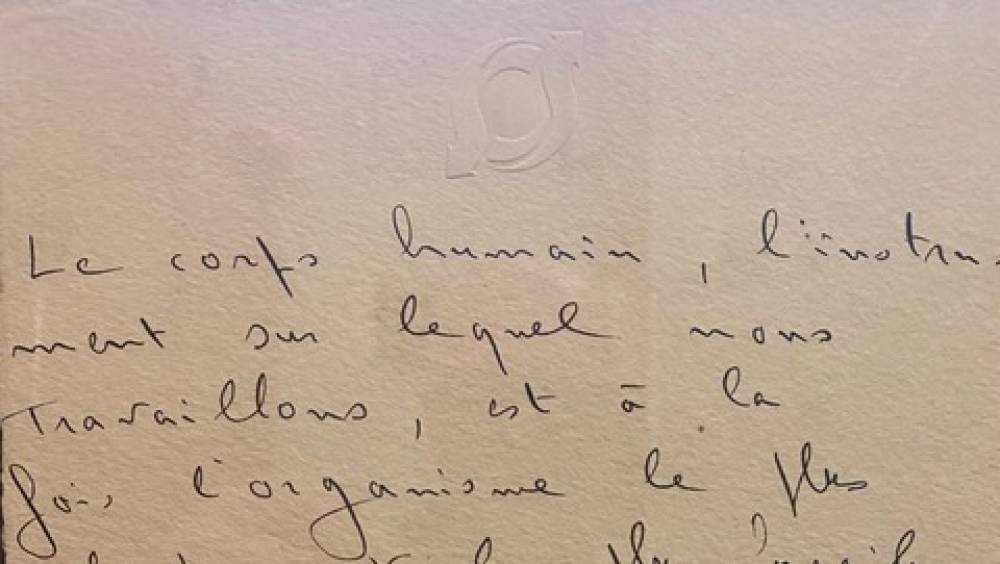 Le corps humain, l'instru-
ment sur lequel nous
travaillons, est à la
fois l'organisme le plus